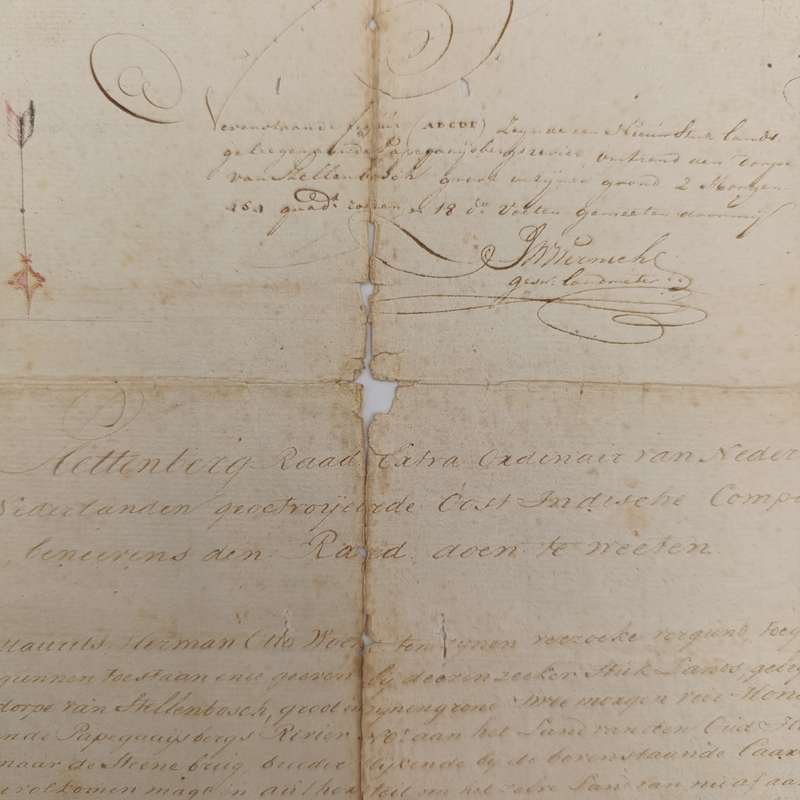 Bovenstaande figuur (ABCDE) Zynde een Nieuw Stuk lands
geleegen aan de Papegaaijsbergs rivier omtrend den Dorpe
van Stellenbosch groot in zijnen grond 2 Morgen
151 quadt. roeden en 18 do. Voeten gemeeten door mij
JWWernich
gesw. landmeter
Plettenberg Raad Extra Ordinair van Neder
Nederlanden geoctroijeerde Oost Indische Comp
beneevens den Raad doen te weeten
Maurits Herman Otto Woeke ten zynen verzoeke vergund, toeg
gunnen toestaan ende geeven by deezen zeeker Stuk Lants geleg
dorpe van Stellenbosch, groot in zynen grond twee morgen vier Hond
ande Papegaaijsbergs Rivier No. aan het Land van den Oud
naar de Steene brug, breeder blykende by de bovenstaande Caar
volkomen magt en authoriteit om het zelve Lant van nu af aan